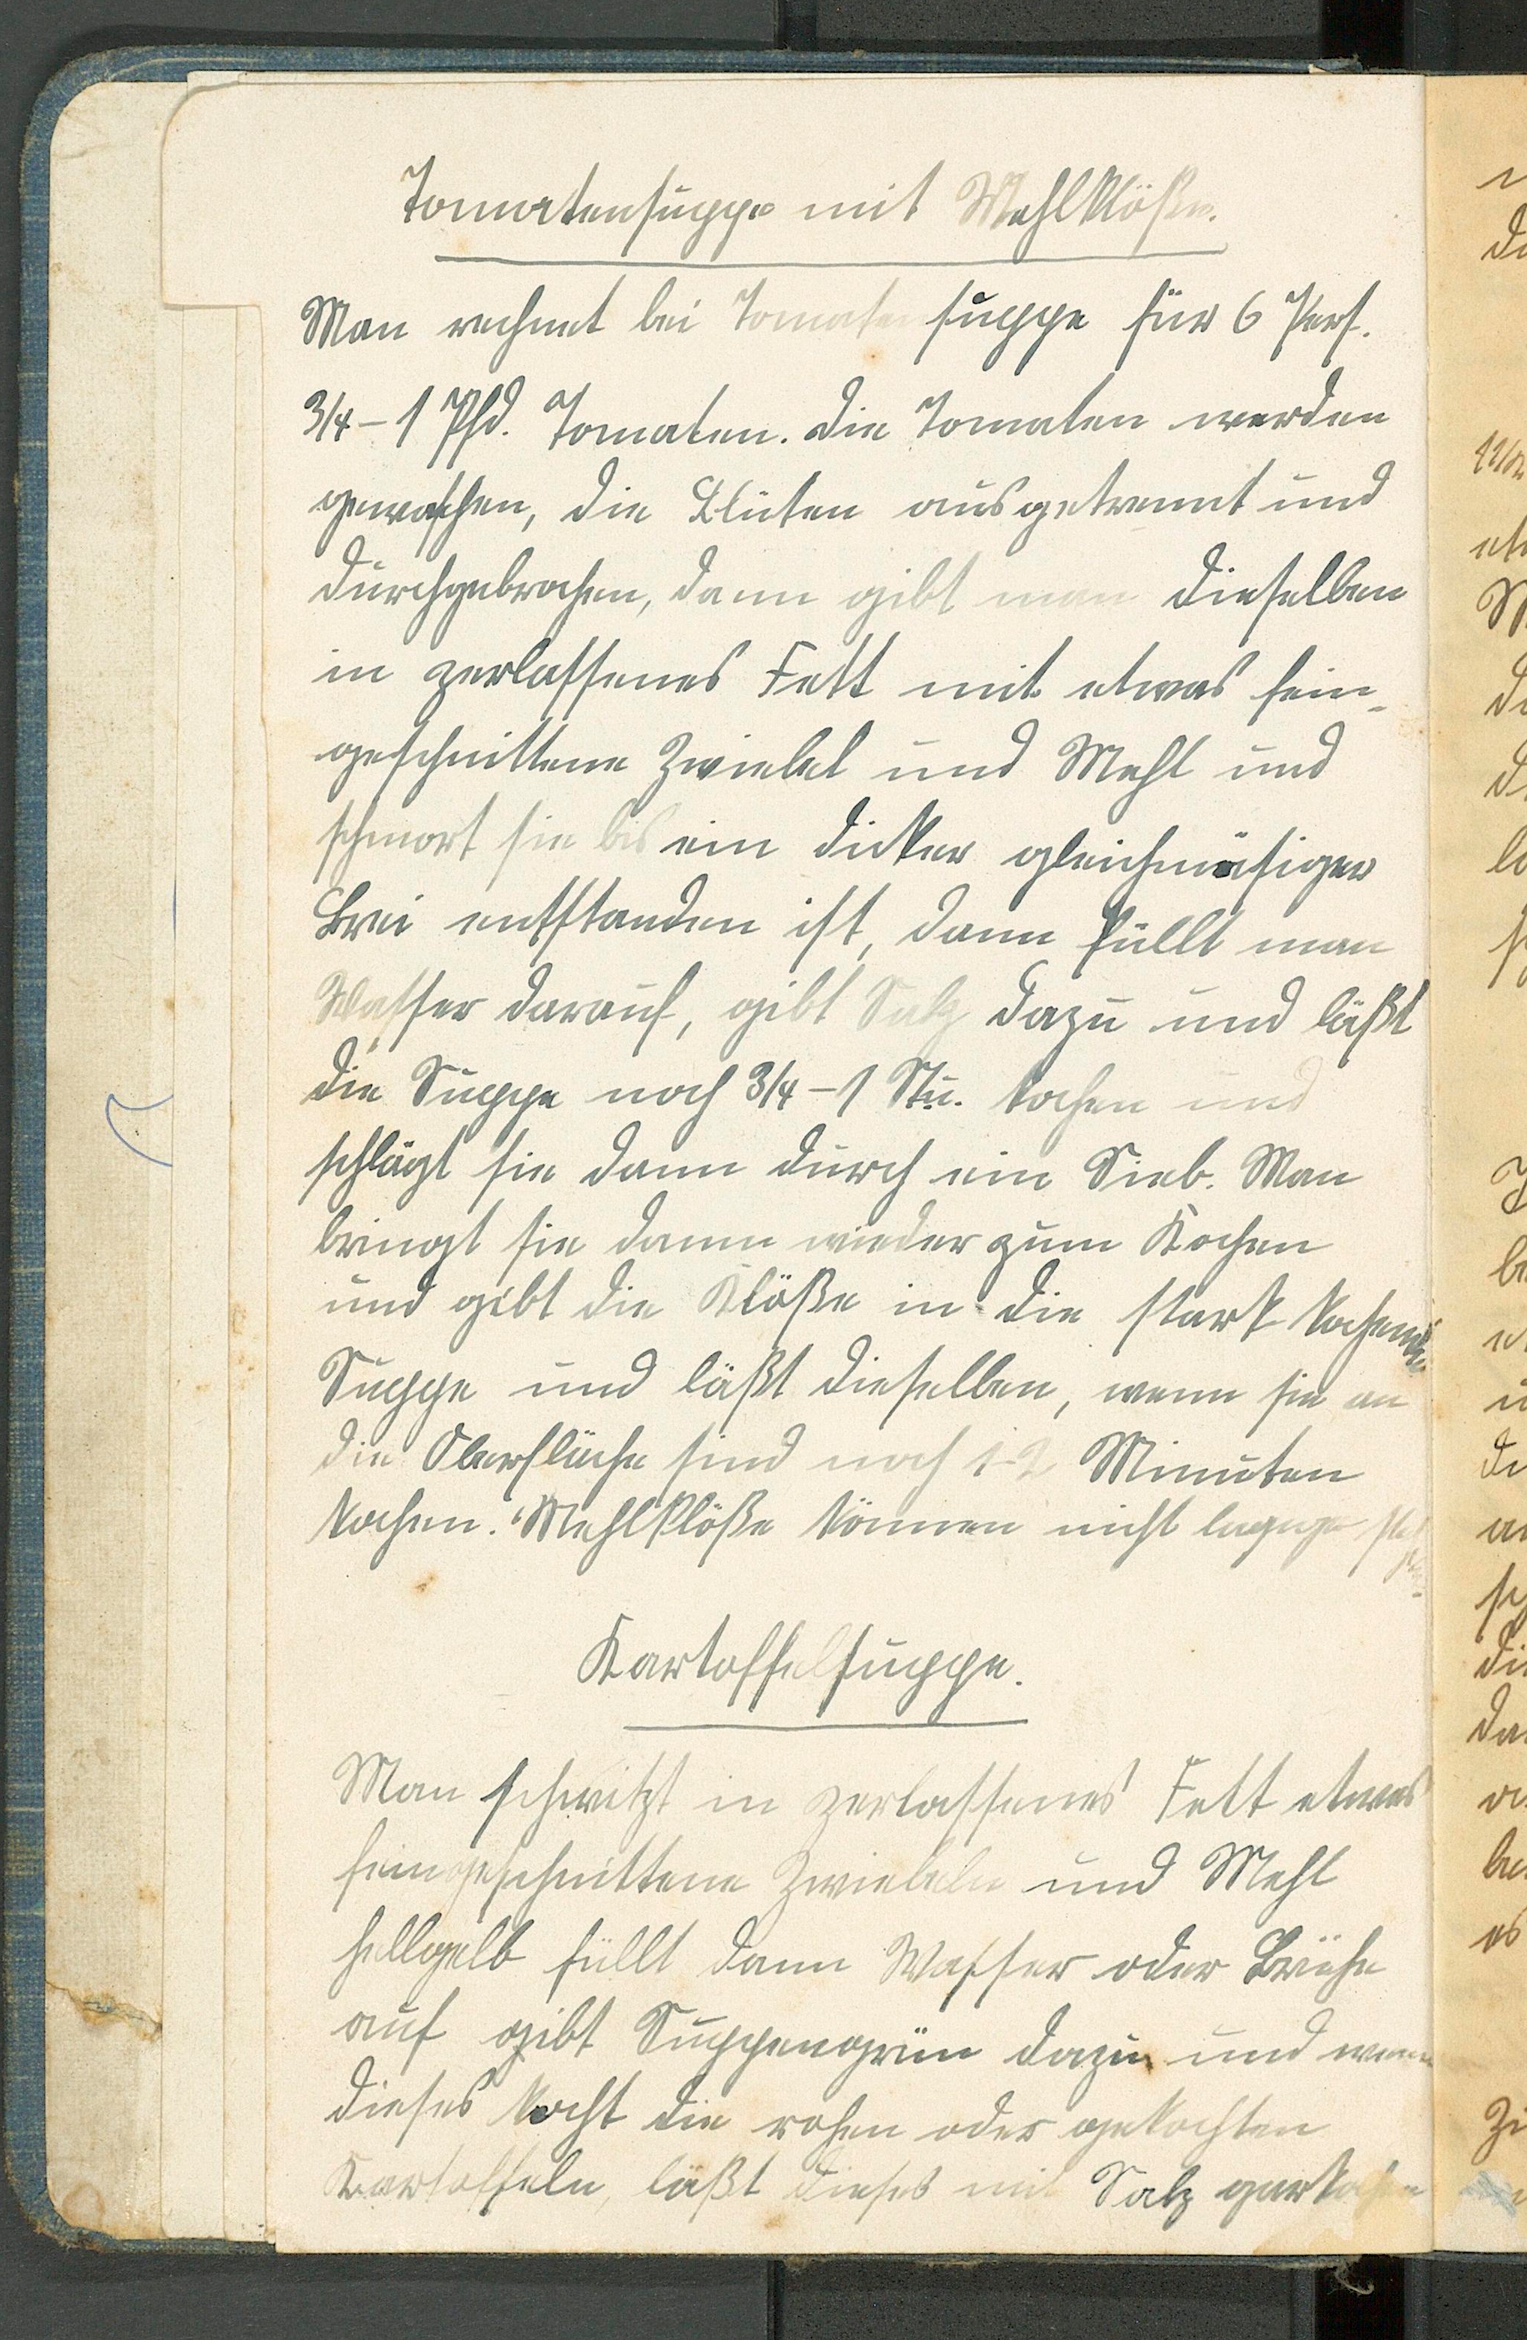 Tomatensuppe mit Mehlklöße.
Man rechnet bei Tomatensuppe für 6 Pers.
3/4 – 1 Pfd. Tomaten. Die Tomaten werden
gewaschen, die Blüten ausgetrennt und
durchgebrochen, dann gibt man dieselben
in zerlassenes Fett mit etwas fein-
geschnittene Zwiebel und Mehl und
schmort sie bis ein dicker gleichmäsiger
Brei entstanden ist, dann füllt man
Wasser darauf, gibt Salz dazu und läßt
die Suppe noch 3/4 – 1 Stu. kochen und
schlägt sie dann durch ein Sieb. Man
bringt sie dann wieder zum Kochen
und gibt die Klöße in die stark kochende
Suppe und läßt dieselben, wenn sie an
die Oberfläche sind noch 1-2 Minuten
kochen. Mehlklöße können nicht
Kartoffelsuppe.
Man schwitzt in zerlassenes Fett etwas
feingeschnittene Zwiebeln und Mehl
hellgelb füllt dann Wasser oder Brühe
auf gibt Suppengrün dazu und wenn
dieses kocht die rohen oder gekochten
Kartoffeln, läßt dieses mit Salz garkochen